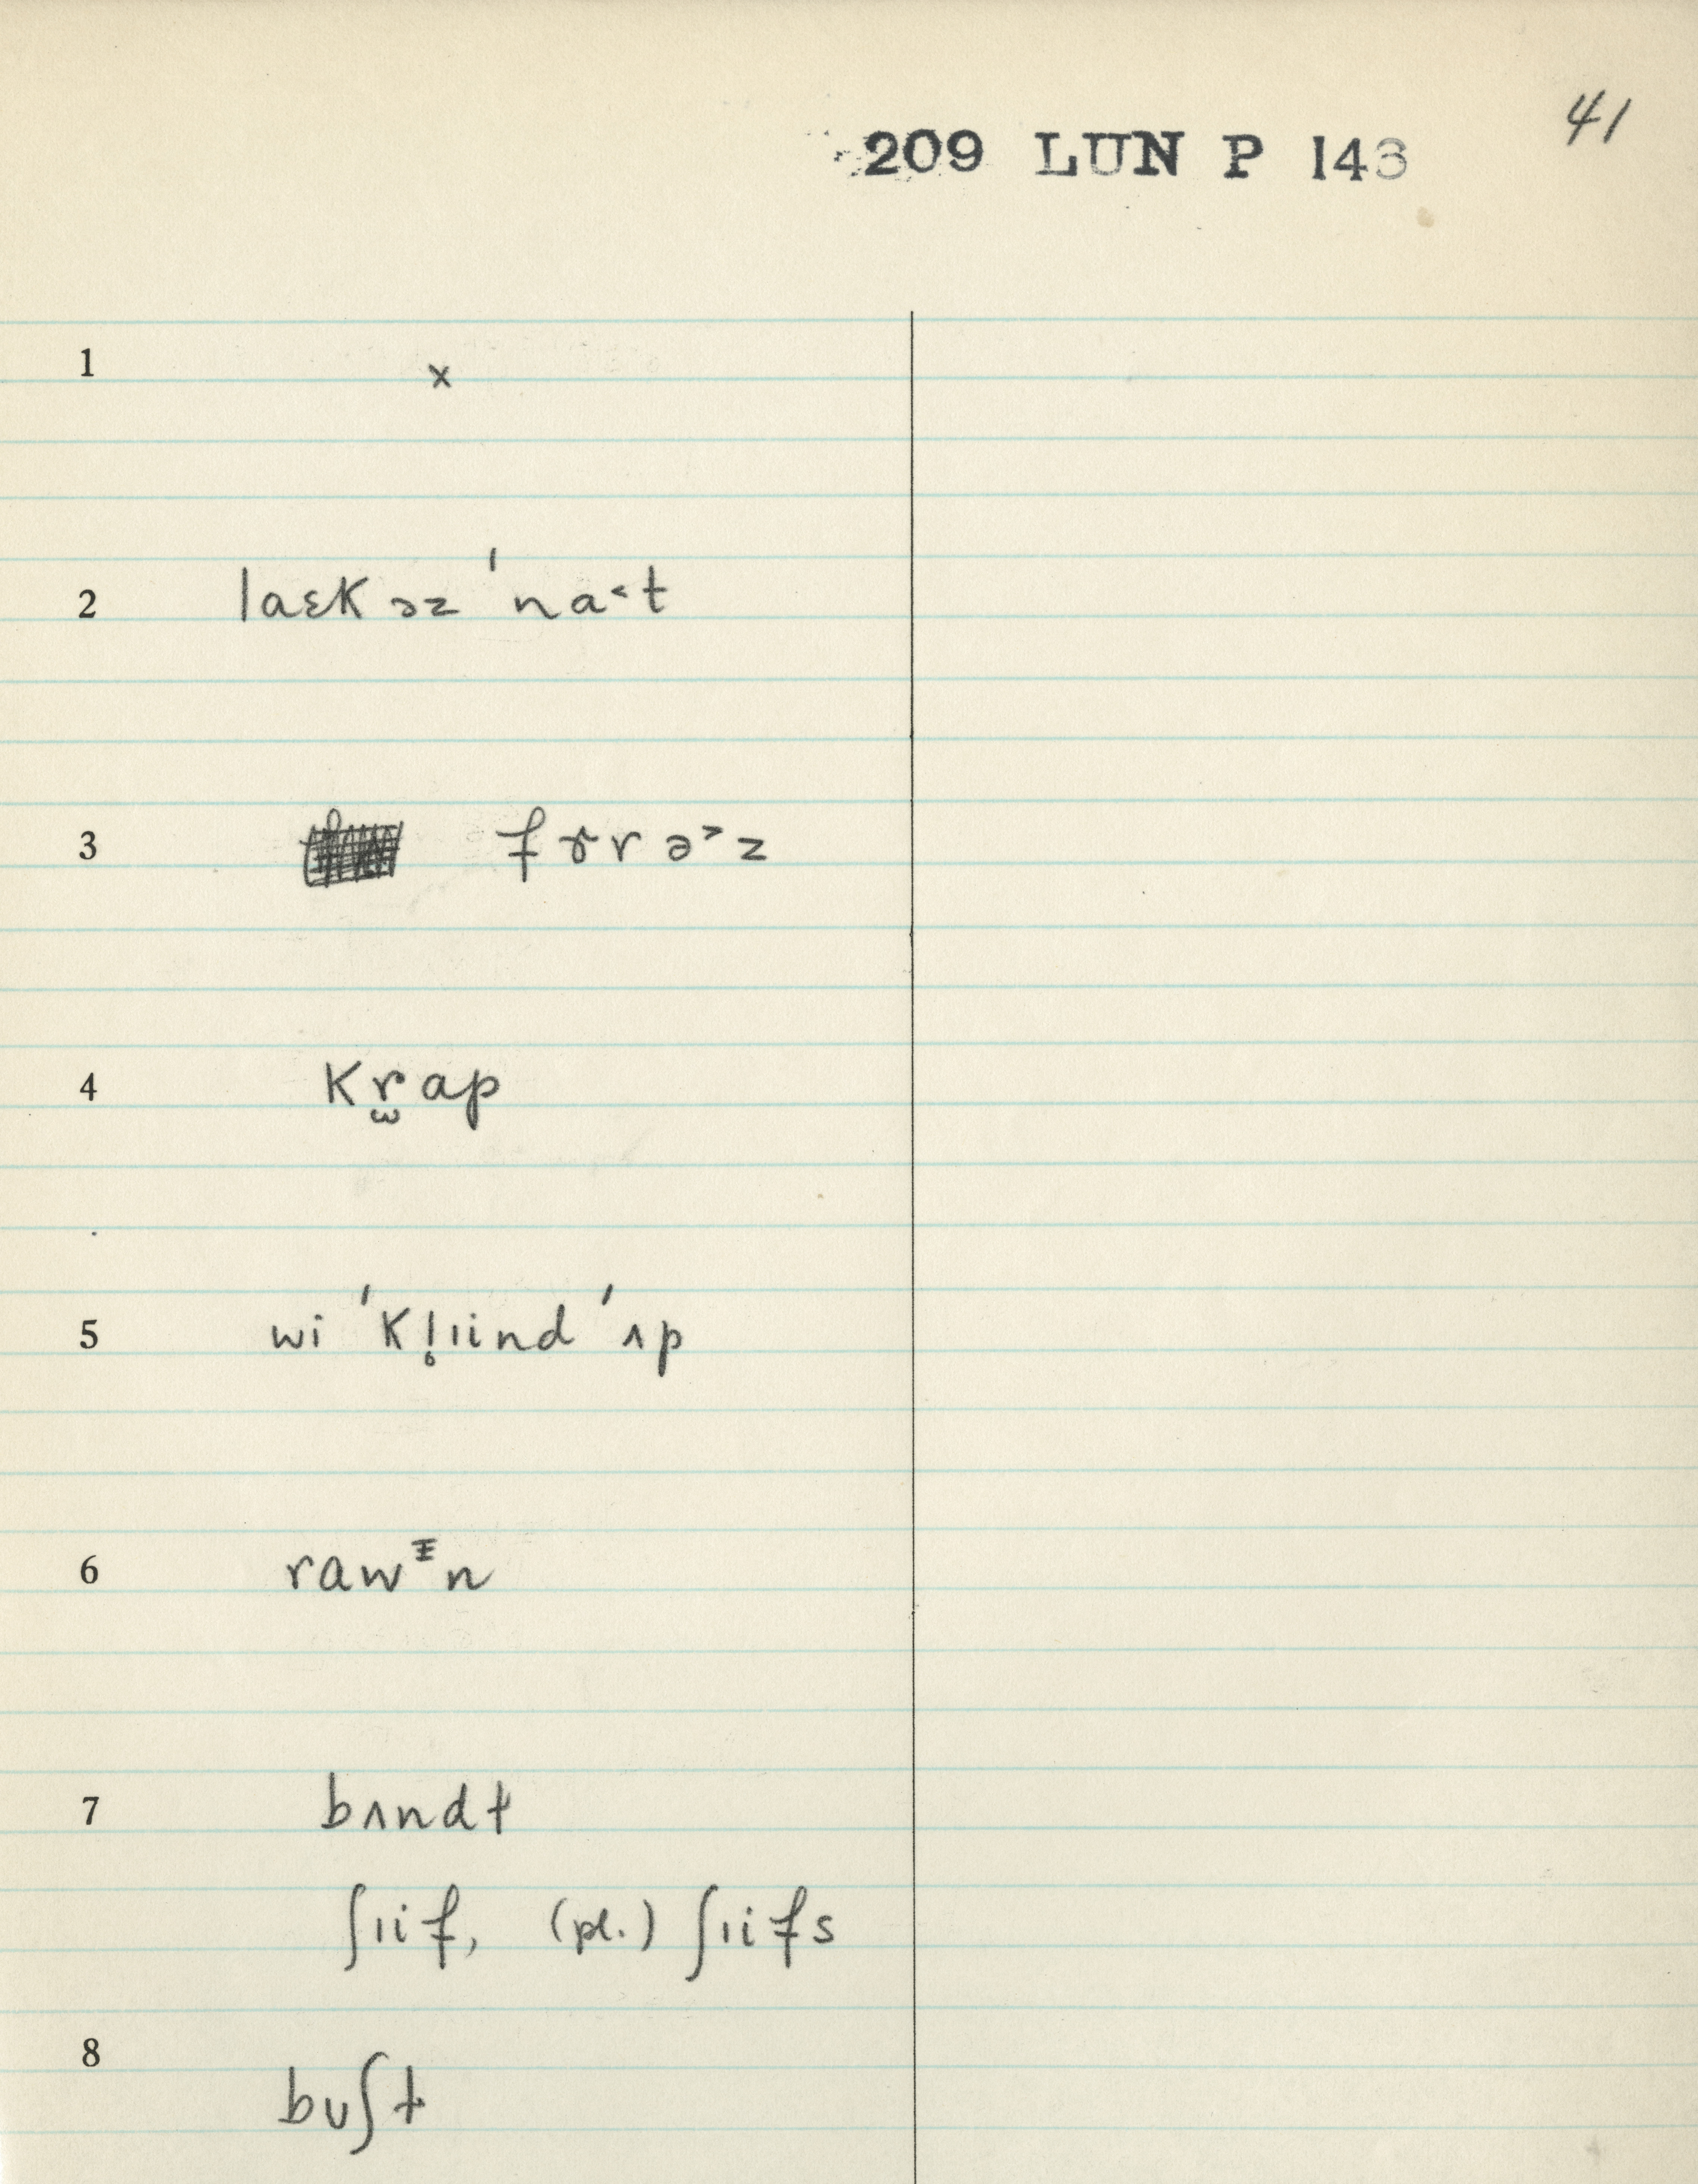 41
209 LUN P 143
1 x
2 laɛk əz ˈna˂t
3 fɤrə˃z
4 kr̫ap
5 wi ˈkl̥ɪind ˈʌp
6 rawᵻn
7 bʌndɫ
ʃɪif, (pl.) ʃɪifs
8 bʊʃɫ